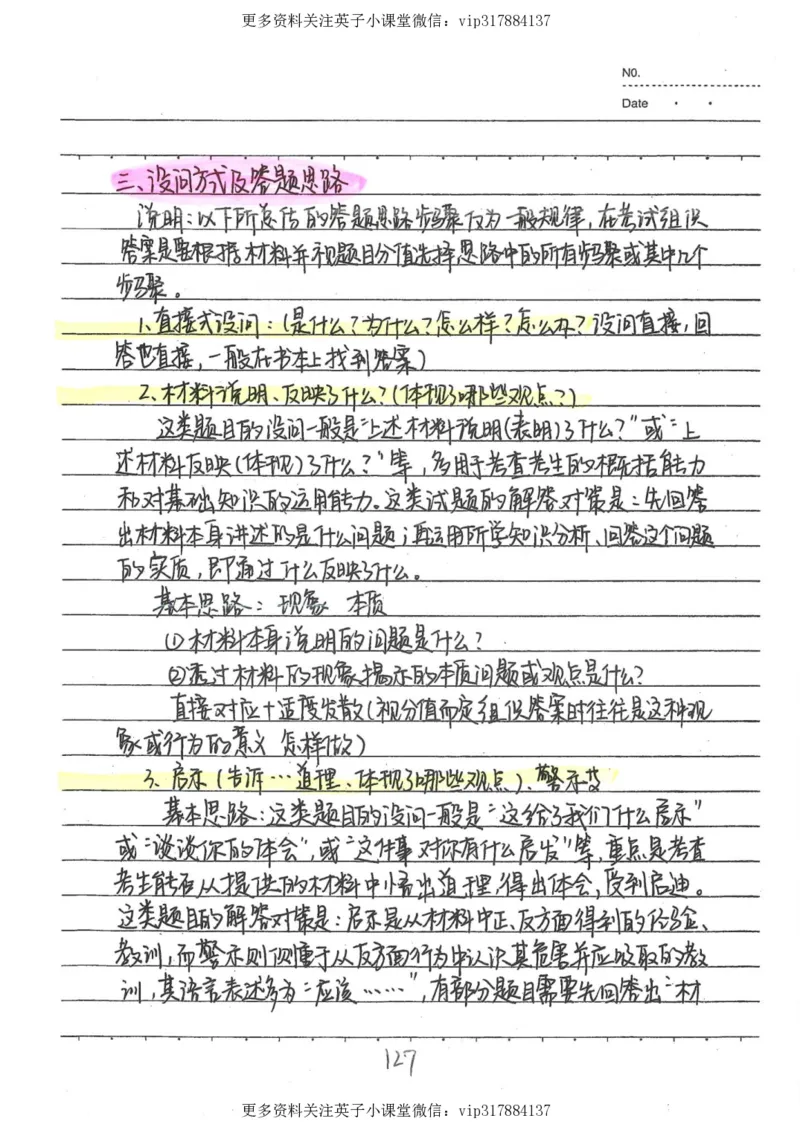 更多资料关注英子小课堂微信：vip317884137
NO.
Date
三、设问方式及答题思路
说明：以下所总结的答题思路步骤仅为一般规律，在考试组织
答案是要根据材料并视题目分值选择思路中的所有步骤或其中几个
步骤。
1、直接式设问：（是什么？为什么？怎么样？怎么办？设问直接，回
答也直接，一般在书本上找到答案）
2、材料说明、反映了什么？（体现了哪些观点？）
这类题目的设问一般是"上述材料说明（表明）了什么？"或"上
述材料反映（体现）了什么？"等，多用于考查考生的概括能力
和对基础知识的运用能力。这类试题的解答对策是：先回答
出材料本身讲述的是什么问题；再运用所学知识分析、回答这个问题
的实质，即通过什么反映了什么。
基本思路：现象 本质
①材料本身说明的问题是什么？
②透过材料的现象揭示的本质问题或观点是什么？
直接对应＋适度发散（视分值而定组织答案时往往是这种现
象或行为的意义 怎样做）
3、启示（告诉…道理、体现了哪些观点）、警示类
基本思路：这类题目的设问一般是"这给了我们什么启示"
或"谈谈你的体会"，或"这件事对你有什么启发"等，重点是考查
考生能否从提供的材料中悟出道理，得出体会，受到启迪。
这类题目的解答对策是：启示是从材料中正、反方面得到的经验、
教训，而警示则侧重于从反方面行为中认识其危害并应吸取的教
训，其语言表述多为"应该……"，有部分题目需要先回答出"材
127
更多资料关注英子小课堂微信：vip317884137